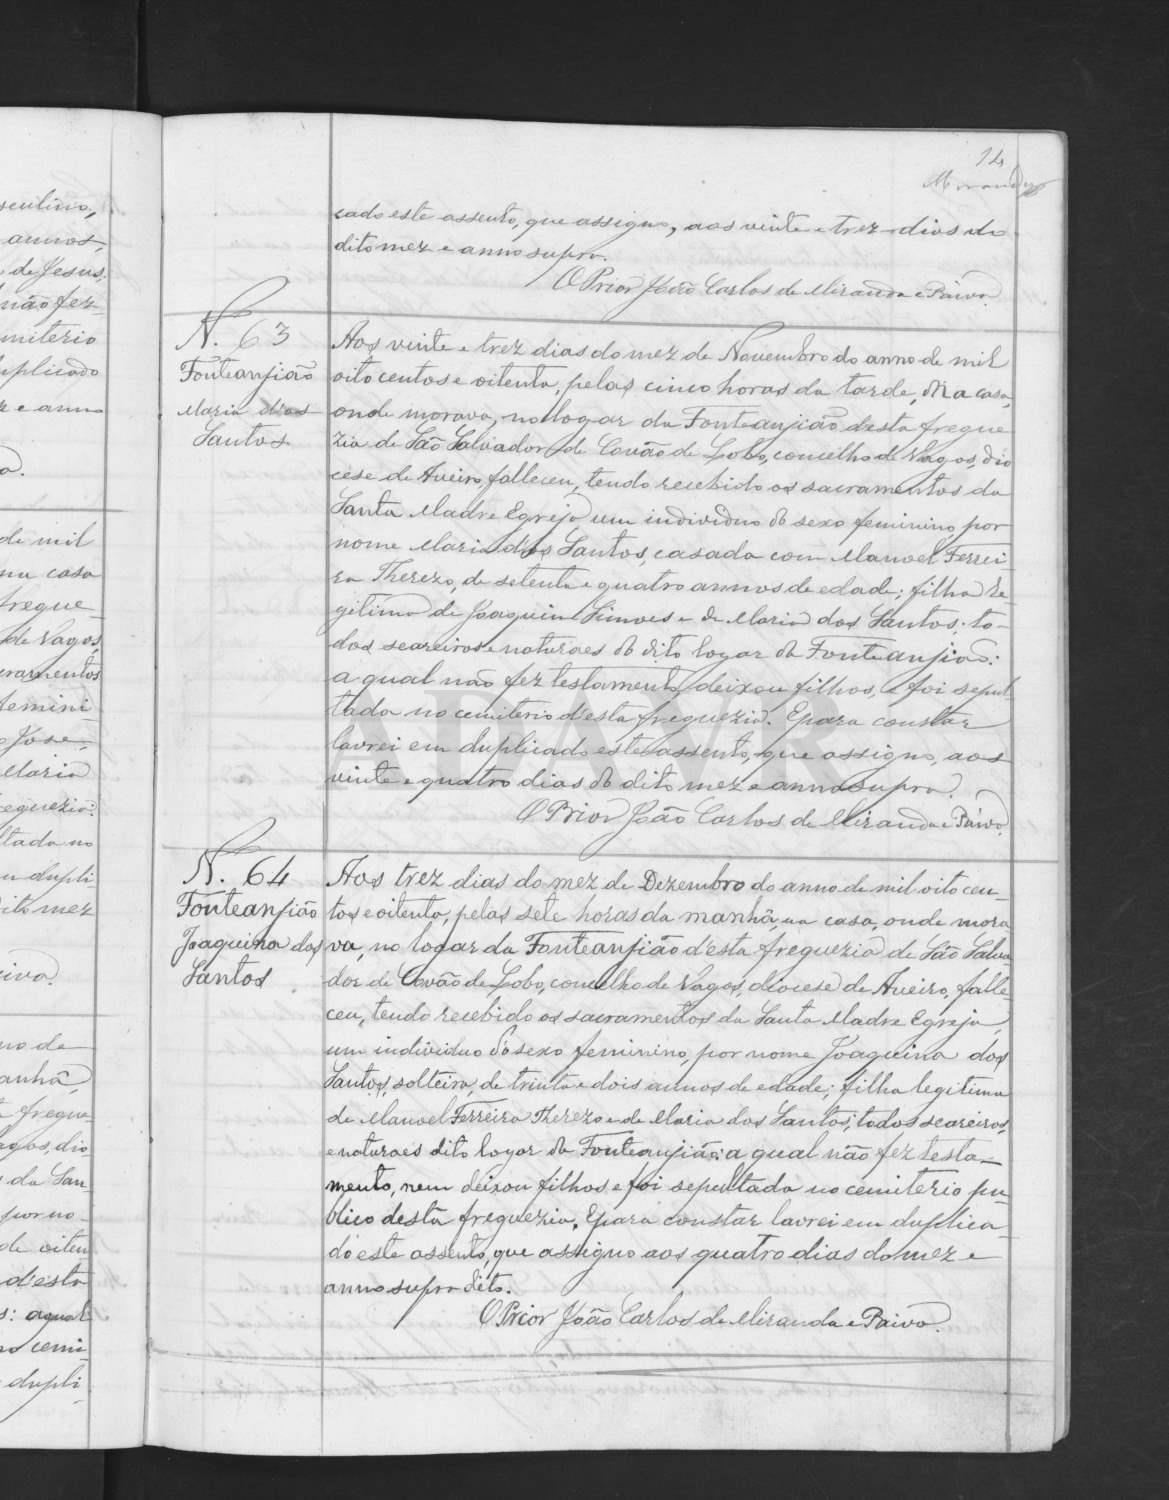 14
Miranda
cado este assento, que assigno, aos vinte e trez dias do
dito mez e anno supra.
O Prior João Carlos de Miranda e Paiva.
N. 63
Fonteanjião
Maria dos
Santos
Aos vinte e trez dias do mez de Novembro do anno de mil
oito centos e oitenta, pelas cinco horas da tarde, na casa,
onde morava, no logar da Fonteanjião d'esta fregue
zia de São Salvador de Covão de Lobo, concelho de Vagos, dio
cese de Aveiro, falleceu, tendo recebido os sacramentos da
Santa Madre Egreja, um individuo do sexo feminino, por
nome Maria dos Santos, casada com Manoel Ferrei-
ra Therezo, de setenta e quatro annos de edade; filha le-
gitima de Joaquim Simoes e de Maria dos Santos; to-
dos seareiros e naturaes do dito logar da Fonteanjião:
a qual não fez testamento, deixou filhos, e foi sepul-
tada no cemiterio d'esta freguezia. E para constar
lavrei em duplicado este assento, que assigno, aos
vinte e quatro dias do dito mez e anno supra.
O Prior João Carlos de Miranda e Paiva.
N. 64
Fonteanjião
Joaquina dos
Santos
Aos trez dias do mez de Dezembro do anno de mil oito cen-
tos e oitenta, pelas sete horas da manhã, na casa, onde mora
va, no logar da Fonteanjião d'esta freguezia de São Salva-
dor de Covão de Lobo, concelho de Vagos, diocese de Aveiro, falle-
ceu, tendo recebido os sacramentos da Santa Madre Egreja,
um individuo do sexo feminino, por nome Joaquina dos
Santos, solteira, de trinta e dois annos de edade; filha legitima
de Manoel Ferreira Therezo e de Maria dos Santos, todos seareiros,
e naturaes dito logar da Fonteanjião: a qual não fez testa-
mento, nem deixou filhos e foi sepultada no cemiterio pu-
blico desta freguezia. E para constar lavrei em duplica-
do este assento, que assigno aos quatro dias do mez e
anno supra dito.
O Prior João Carlos de Miranda e Paiva.